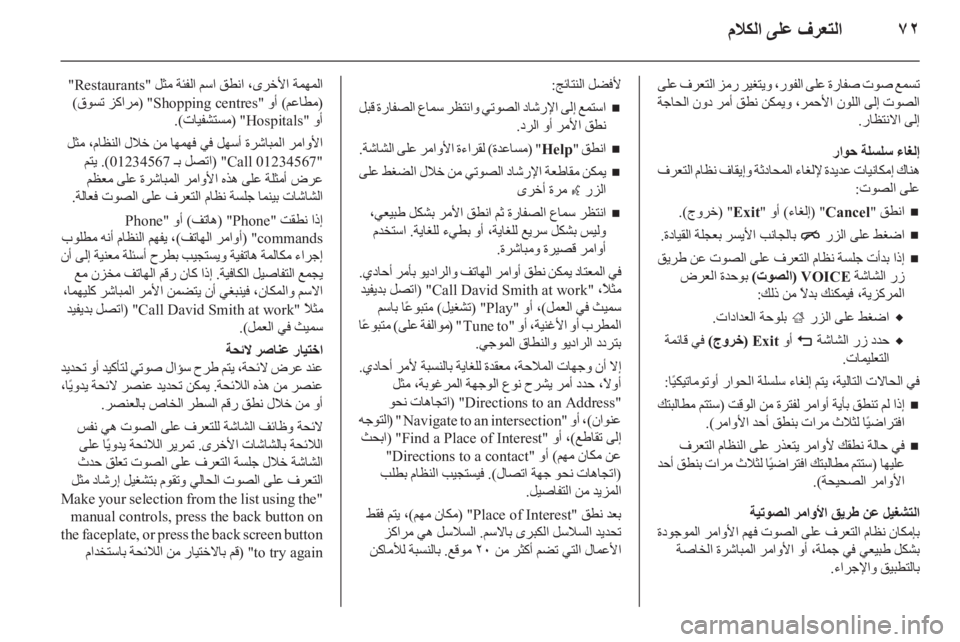 ٧٢ التعرف على الكلام
تسمع صوت صفارة على الفور، ويتغير رمز التعرف على
الصوت إلى اللون الأحمر، ويمكن نطق أمر دون الحاجة
إلى الانتظار.
إلغاء سلسلة حوار
هناك إمكانيات عديدة لإلغاء المحادثة وإيقاف نظام التعرف
على الصوت:
■ نطق "Cancel" (إلغاء) أو "Exit" (خروج).
■ اضغط على الزر n بالجانب الأيسر بعجلة القيادة.
■ إذا بدأت جلسة نظام التعرف على الصوت عن طريق
زر الشاشة VOICE (الصوت) بوحدة العرض
المركزية، فيمكنك بدلاً من ذلك:
◆ اضغط على الزر ; بلوحة العدادات.
◆ حدد زر الشاشة m أو Exit (خروج) في قائمة
التعليمات.
في الحالات التالية، يتم إلغاء سلسلة الحوار أوتوماتيكيًا:
■ إذا لم تنطق بأية أوامر لفترة من الوقت (ستتم مطالبتك
افتراضيًا لثلاث مرات بنطق أحد الأوامر).
■ في حالة نطقك لأوامر يتعذر على النظام التعرف
عليها (ستتم مطالبتك افتراضيًا لثلاث مرات بنطق أحد
الأوامر الصحيحة).
التشغيل عن طريق الأوامر الصوتية
بإمكان نظام التعرف على الصوت فهم الأوامر الموجودة
بشكل طبيعي في جملة، أو الأوامر المباشرة الخاصة
بالتطبيق والإجراء.
لأفضل النتائج:
■ استمع إلى الإرشاد الصوتي وانتظر سماع الصفارة قبل
نطق الأمر أو الرد.
■ انطق "Help" (مساعدة) لقراءة الأوامر على الشاشة.
■ يمكن مقاطعة الإرشاد الصوتي من خلال الضغط على
الزر w مرة أخرى
■ انتظر سماع الصفارة ثم انطق الأمر بشكل طبيعي،
وليس بشكل سريع للغاية، أو بطيء للغاية. استخدم
أوامر قصيرة ومباشرة.
في المعتاد يمكن نطق أوامر الهاتف والراديو بأمر أحادي.
مثلاً، "Call David Smith at work" (اتصل بديفيد
سميث في العمل)، أو "Play" (تشغيل) متبوعًا باسم
المطرب أو الأغنية، أو "Tune to" (موالفة على) متبوعًا
بتردد الراديو والنطاق الموجي.
إلا أن وجهات الملاحة، معقدة للغاية بالنسبة لأمر أحادي.
أولاً، حدد أمر يشرح نوع الوجهة المرغوبة، مثل
"Directions to an Address" (اتجاهات نحو
عنوان)، أو "Navigate to an intersection" (التوجه
إلى تقاطع)، أو "Find a Place of Interest" (ابحث
عن مكان مهم) أو "Directions to a contact"
(اتجاهات نحو جهة اتصال). فيستجيب النظام بطلب
المزيد من التفاصيل.
بعد نطق "Place of Interest" (مكان مهم)، يتم فقط
تحديد السلاسل الكبرى بالاسم. السلاسل هي مراكز
الأعمال التي تضم أكثر من ٢٠ موقع. بالنسبة للأماكن
المهمة الأخرى، انطق اسم الفئة مثل "Restaurants"
(مطاعم) أو "Shopping centres" (مراكز تسوق)
أو "Hospitals" (مستشفيات).
الأوامر المباشرة أسهل في فهمها من خلال النظام، مثل
"Call 01234567" (اتصل بـ 01234567). يتم
عرض أمثلة على هذه الأوامر المباشرة على معظم
الشاشات بينما جلسة نظام التعرف على الصوت فعالة.
إذا نطقت "Phone" (هاتف) أو "Phone
commands" (أوامر الهاتف)، يفهم النظام أنه مطلوب
إجراء مكالمة هاتفية ويستجيب بأسئلة معينة إلى أن
يجمع التفاصيل الكافية. إذا كان رقم الهاتف مخزن مع
الاسم والمكان، فينبغي أن يتضمن الأمر المباشر كليهما،
مثلاً "Call David Smith at work" (اتصل بديفيد
سميث في العمل).
اختيار عناصر اللائحة
عند عرض لائحة، يتم طرح سؤال صوتي لتأكيد أو تحديد
عنصر من هذه اللائحة. يمكن تحديد عنصر لائحة يدويًا،
أو من خلال نطق رقم السطر الخاص بالعنصر.
لائحة وظائف الشاشة للتعرف على الصوت هي نفس
اللائحة بالشاشات الأخرى. تمرير اللائحة يدويًا على
الشاشة خلال جلسة التعرف على الصوت تعلق حدث
التعرف على الصوت الحالي وتقوم بتشغيل إرشاد مثل
"Make your selection from the list using the
manual controls, press the back button on
the faceplate, or press the back screen button
to try again" (قم بالاختيار من اللائحة باستخدام